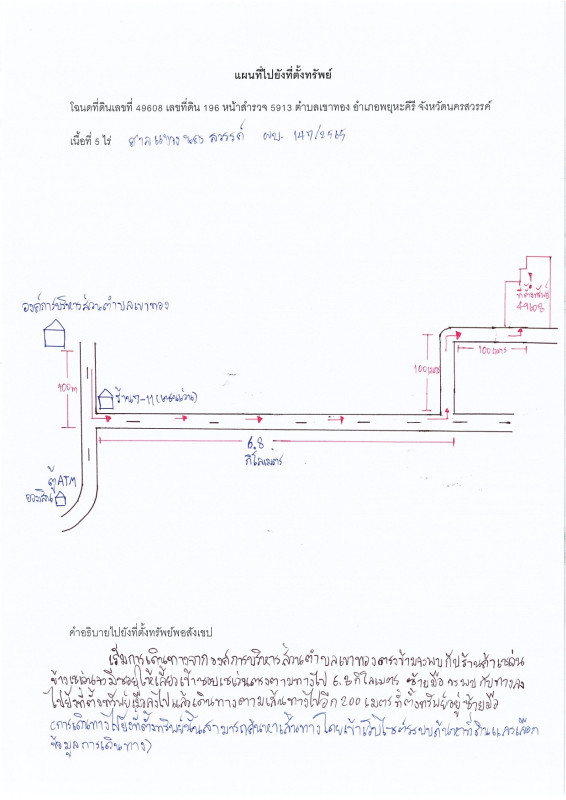 แผนที่ไปยังที่ตั้งทรัพย์
โฉนดที่ดินเลขที่ 49608 เลขที่ดิน 196 หน้าสำรวจ 5913 ตำบลเขาทอง อำเภอพยุหะคีรี จังหวัดนครสวรรค์
เนื้อที่ 5 ไร่ ศาลแขวงนครสวรรค์ ผบ. 147/2565
ที่ตั้งทรัพย์
49608
องค์การบริหารส่วนตำบลเขาทอง
100 เมตร
100 เมตร
ร้าน 7-11
6.8
กิโลเมตร
ตู้ ATM
ออมสิน
คำอธิบายไปยังที่ตั้งทรัพย์พอสังเขป
เริ่มการเดินทางจากองค์การบริหารส่วนตำบลเขาทองตรงข้ามจะพบกับร้านค้าเซเว่น
ข้างเซเว่นจะมีซอยให้เลี้ยวเข้าซอยเซเว่นตรงตามทางไป 6.8 กิโลเมตร ซ้ายมือจะพบกับทางลง
ไปยังที่ตั้งทรัพย์ แล้วเดินทางตามเส้นทางไปอีก 200 เมตร ที่ตั้งทรัพย์อยู่ซ้ายมือ
(การเดินทางไปยังที่ตั้งทรัพย์นั้นสามารถค้นหาเส้นทางโดยเข้าเว็บไซต์ระบบค้นหาที่ดินและเลือก
ข้อมูลการเดินทาง)